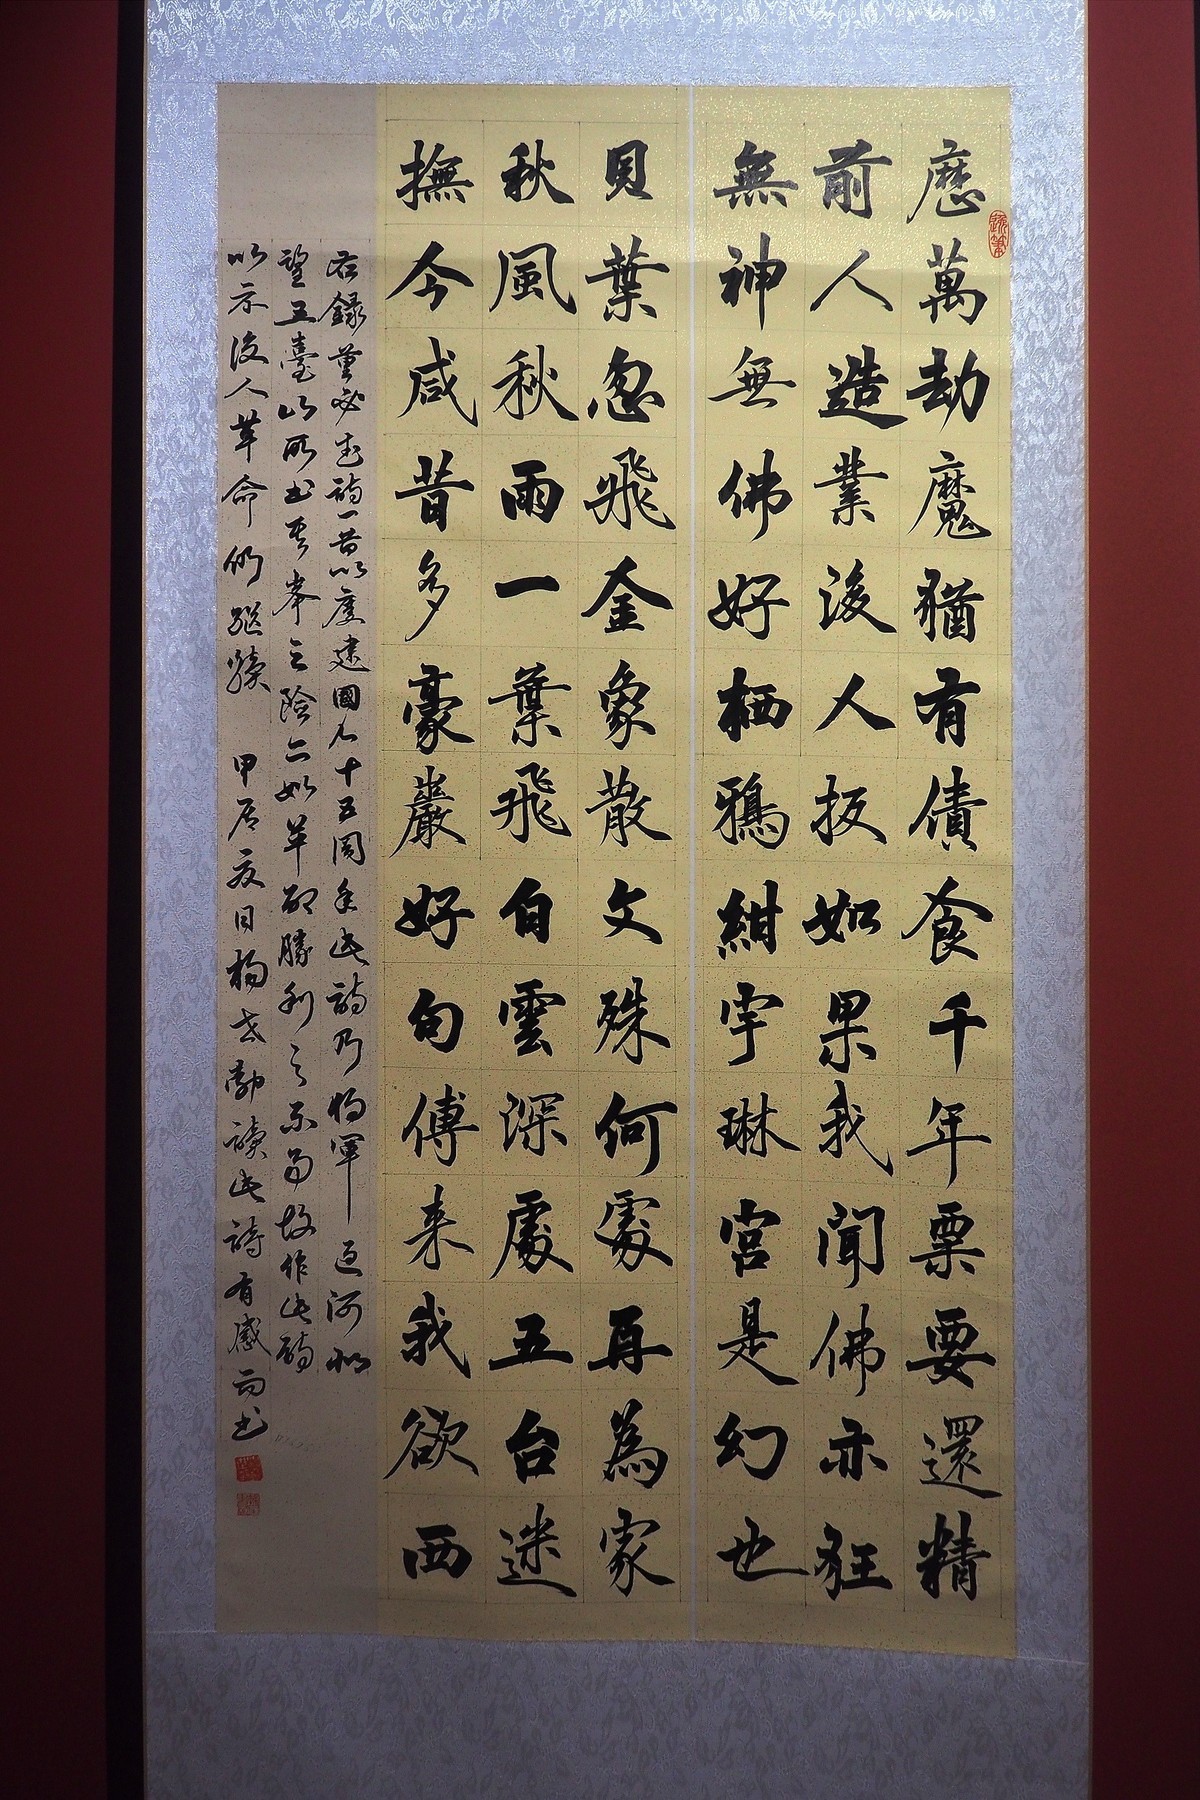 歷萬劫魔猶有債食千年票要還精
前人造業後人扳如果我聞佛亦狂
無神無佛好栖鴉紺宇琳宮是幻也
貝葉忽飛金象散文殊何處再為家
秋風秋雨一葉飛白雲深處五台迷
撫今咸昔多豪巖好句傳來我欲西
右錄董必武詩一首以慶建國七十五周年此詩乃將軍過河北
望五臺山所書其峯之險亦如革命勝利之不易故作此詩
以示後人革命的繼續 甲辰夏日楊志勤讀此詩有感而書